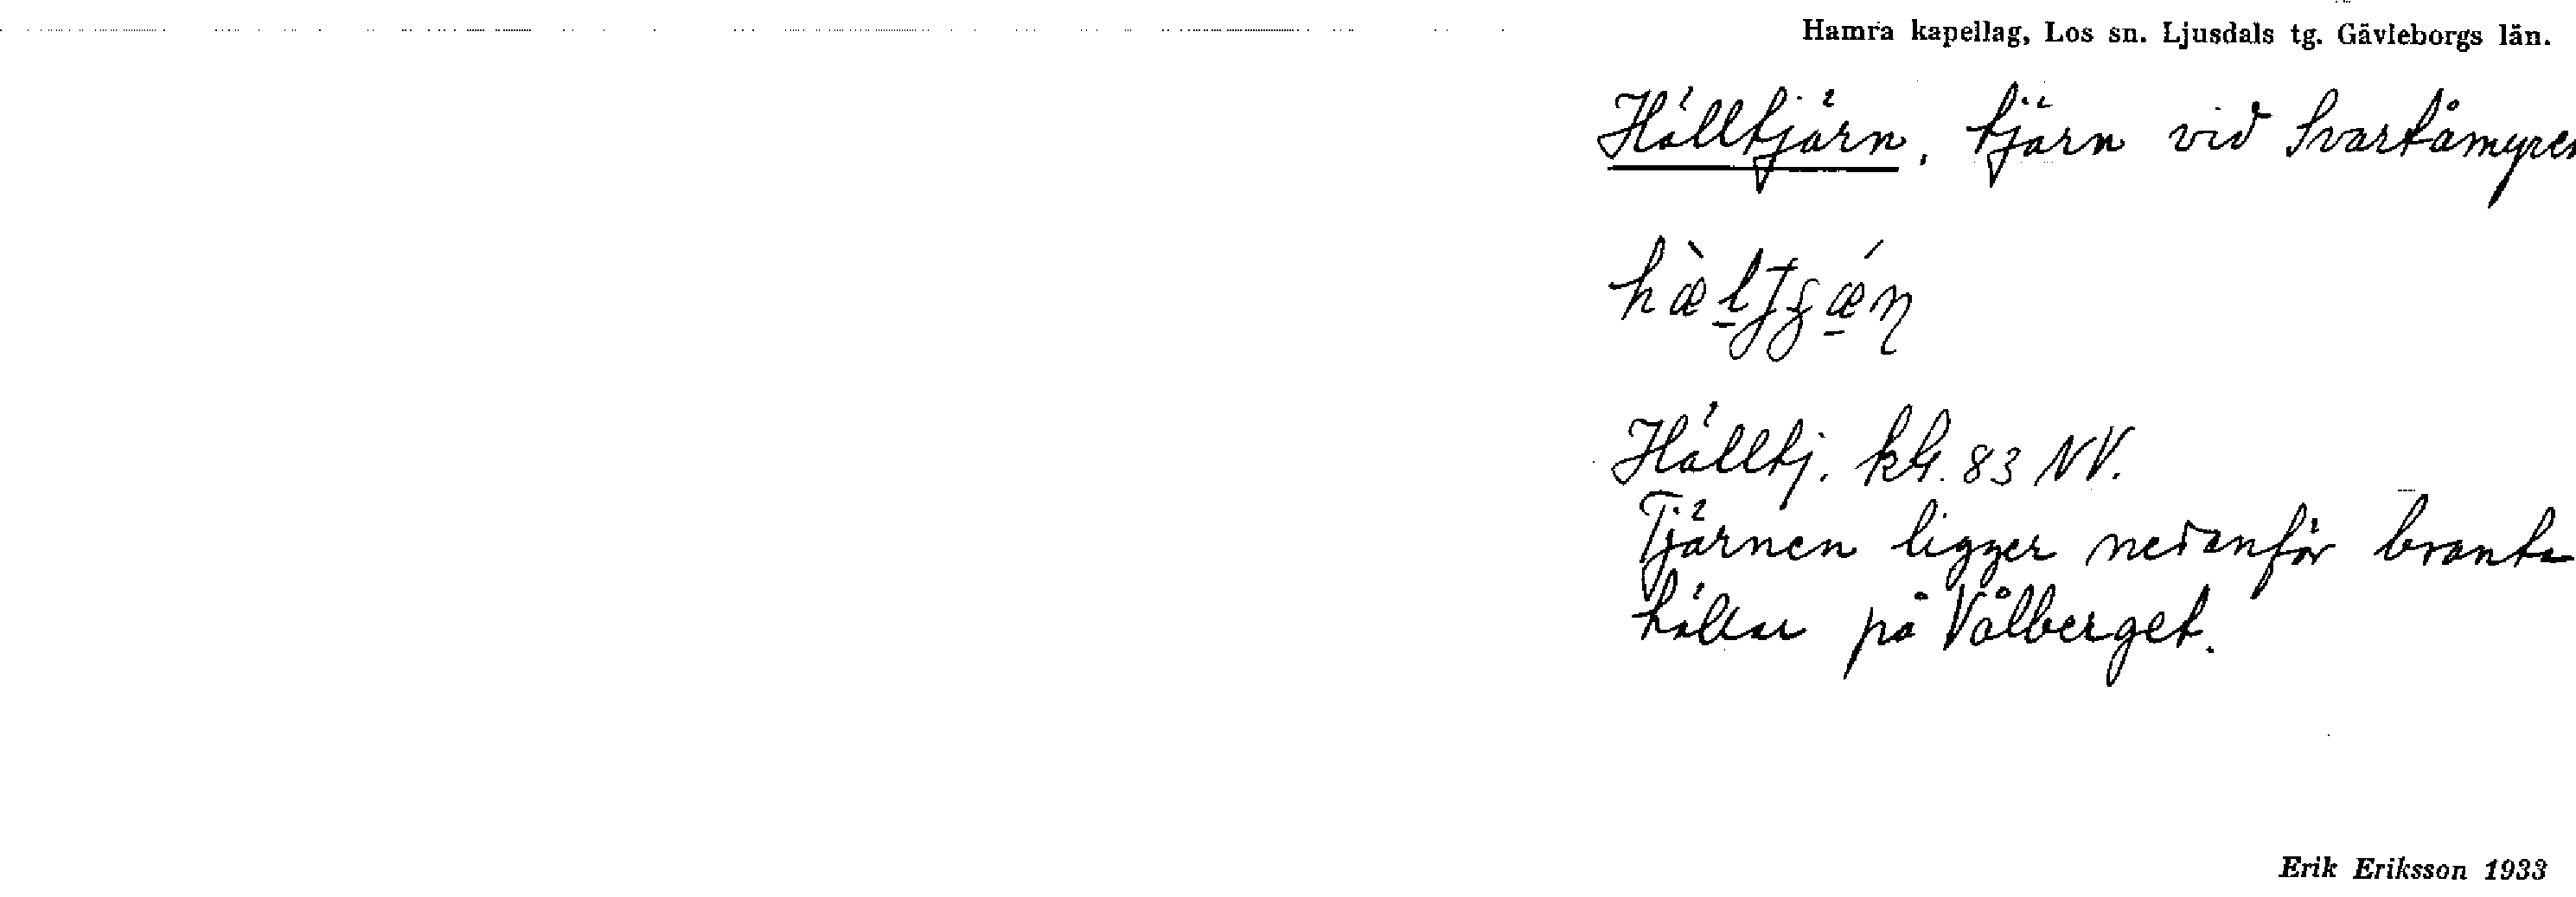 Hamra kapellag, Los sn. Ljusdals tg. Gävleborgs län.
Hälltjärn, tjärn vid Svartåmyren
Hälltj. kbl. 83 NV.
Tjärnen ligger nedanför branta
hällar på Vålberget.
Erik Eriksson 1933